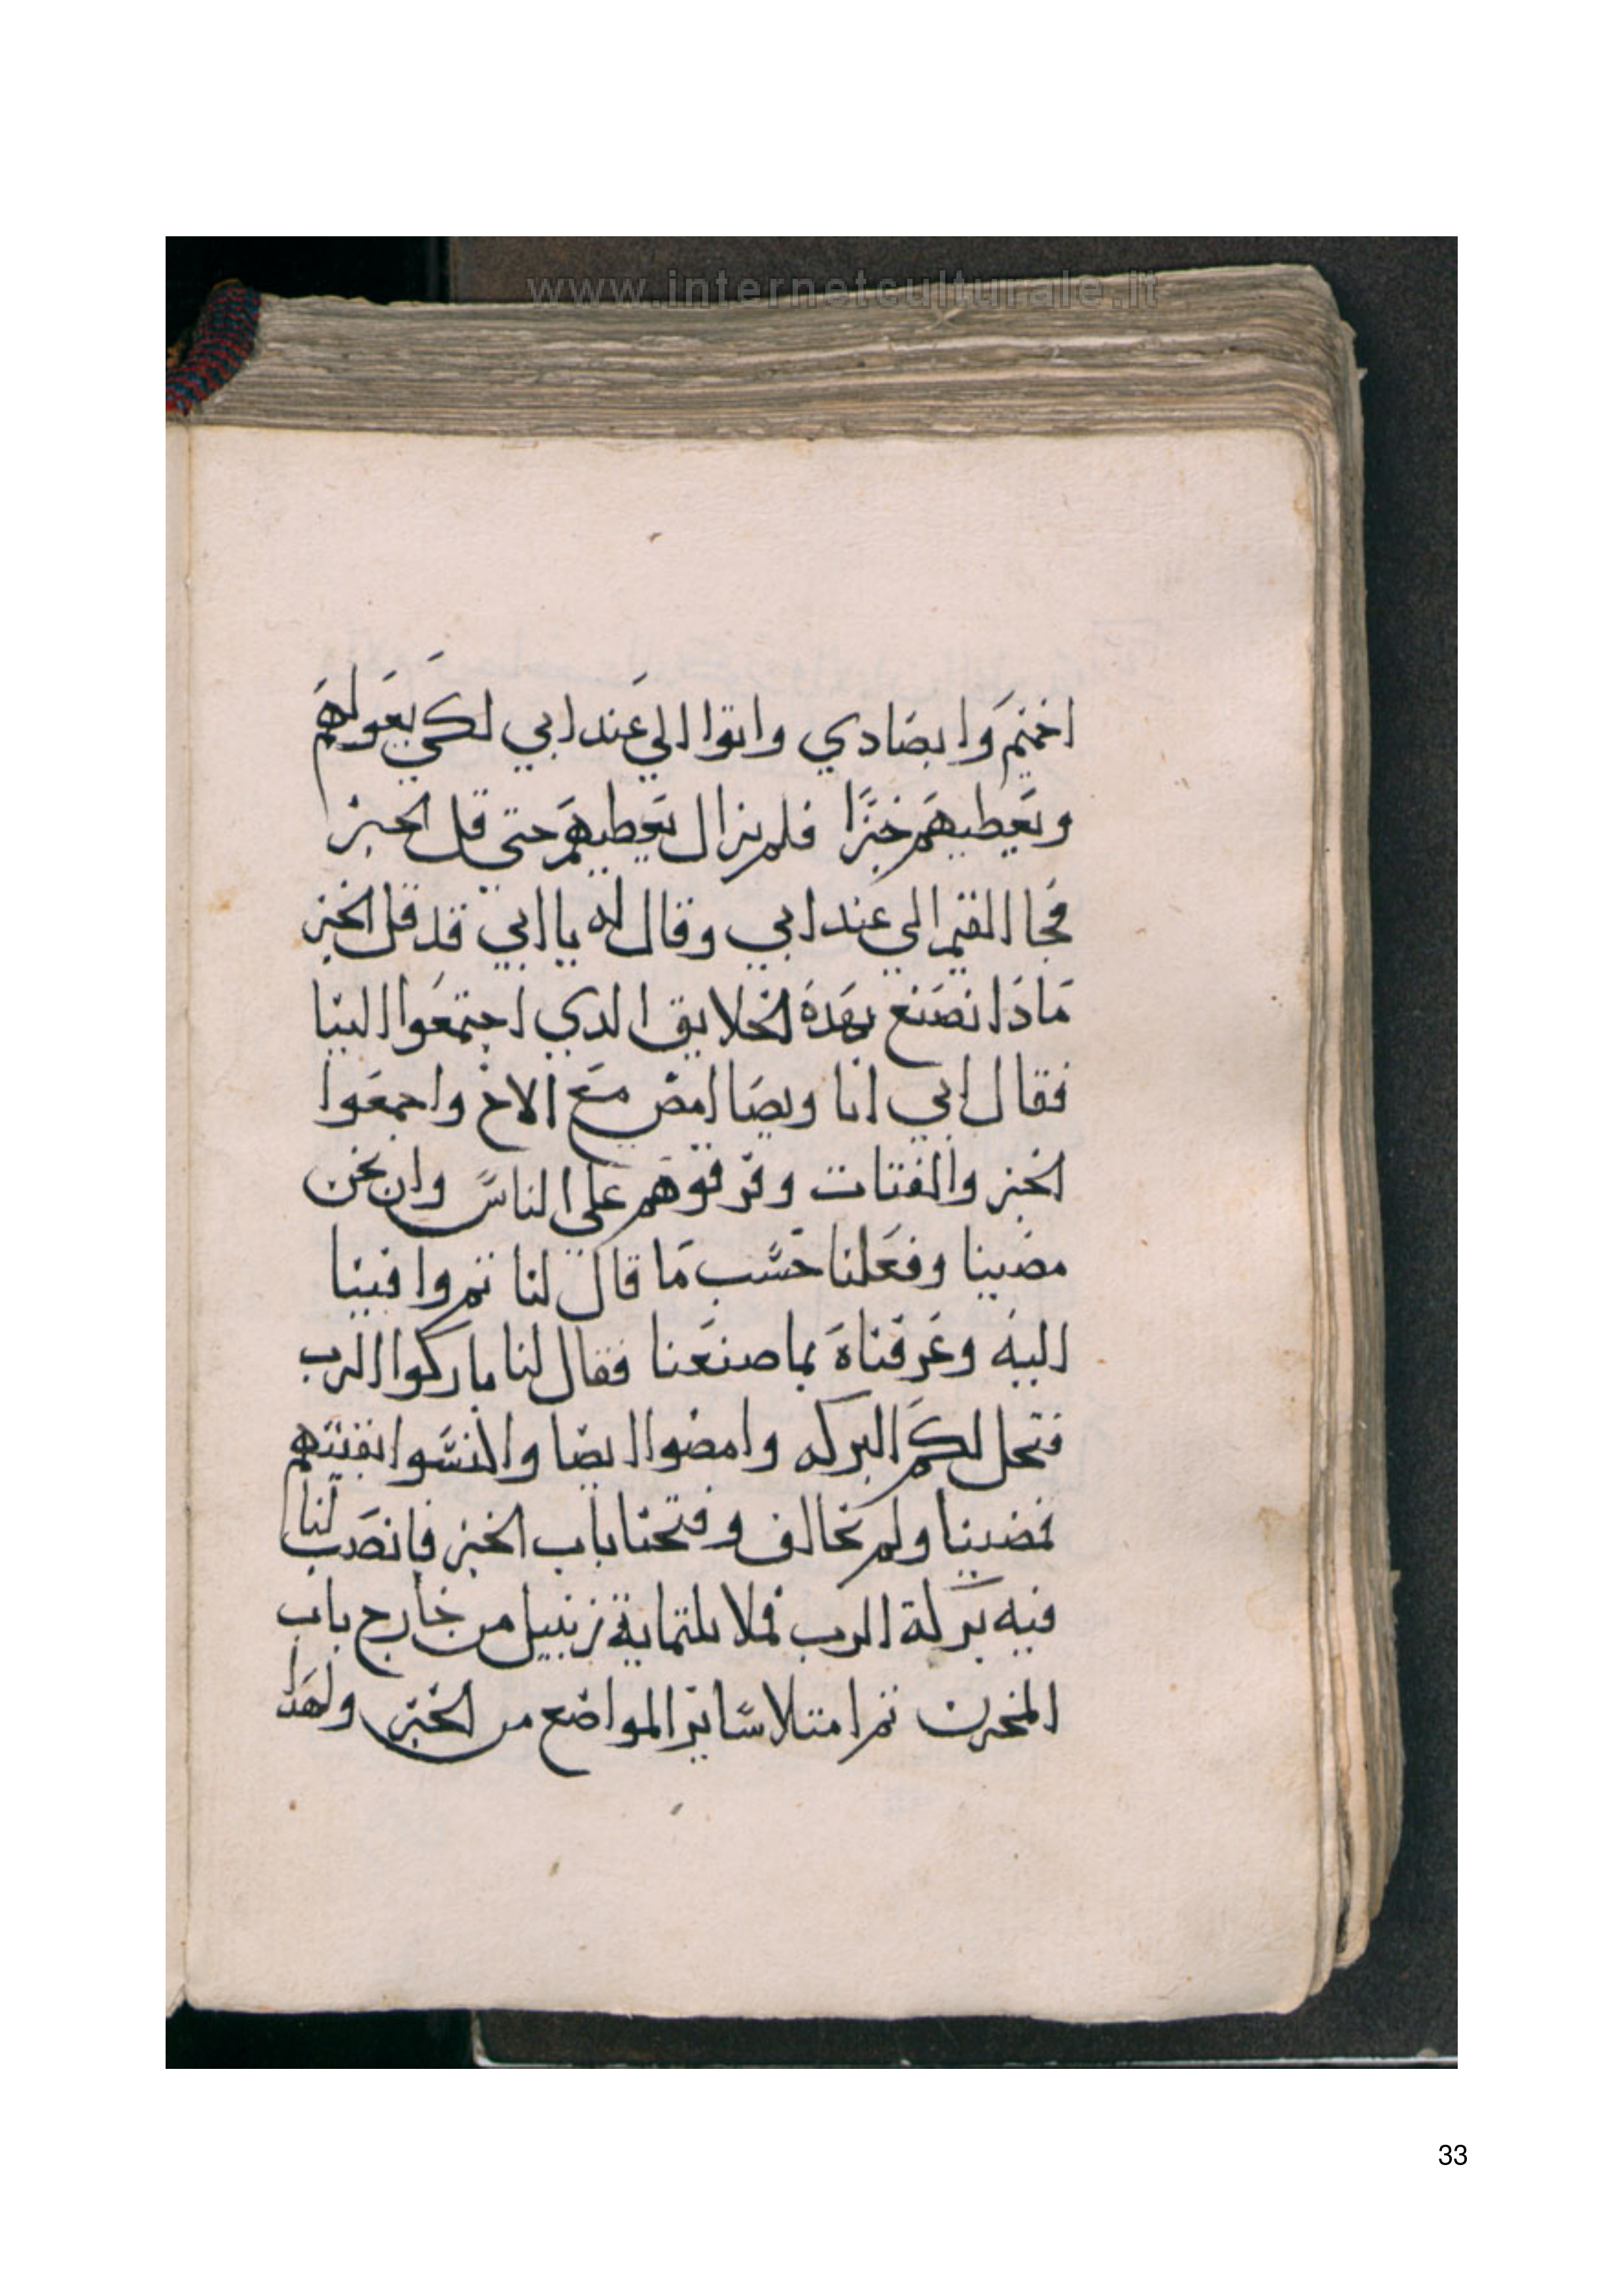 www.internetculturale.it
اخميم وابصادي واتوا الي عند ابي لكي يعولهم
ويعطيهم خبزًا فلم يزال يعطيهم حتى قل الخبز
فجا القيم الي عند ابي وقال له يا ابي قد قل الخبز
ماذا نصنع بهذه الخلايق الدي اجتمعوا الينا
فقال ابي انا ويصا امض مع الاخ واجمعوا
الخبز والفتات وفرقوهم علي الناس وان نحن
مضينا وفعلنا حسب ما قال لنا تم وافينا
اليه وعرفناه بما صنعنا فقال لنا باركوا الرب
فتحل لكم البركه وامضوا ايضا والنسوا بقيتهم
فمضينا ولم نخالف وفتحنا باب الخبز فانصب لنا
فيه بركة الرب فملا تلتماية زنبيل من خارج باب
المخزن تم امتلا ساير المواضع من الخبز ولهدا
33